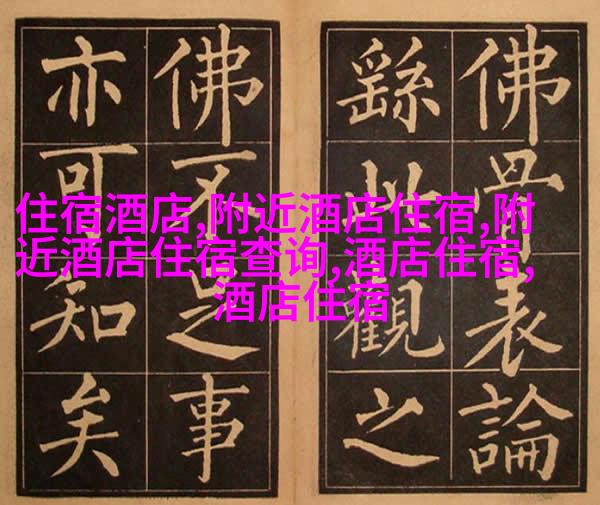 佛骨表論
繇此觀之
佛不足事
亦可知矣
住宿酒店,附近酒店住宿,附
近酒店住宿查询,酒店住宿,
酒店住宿